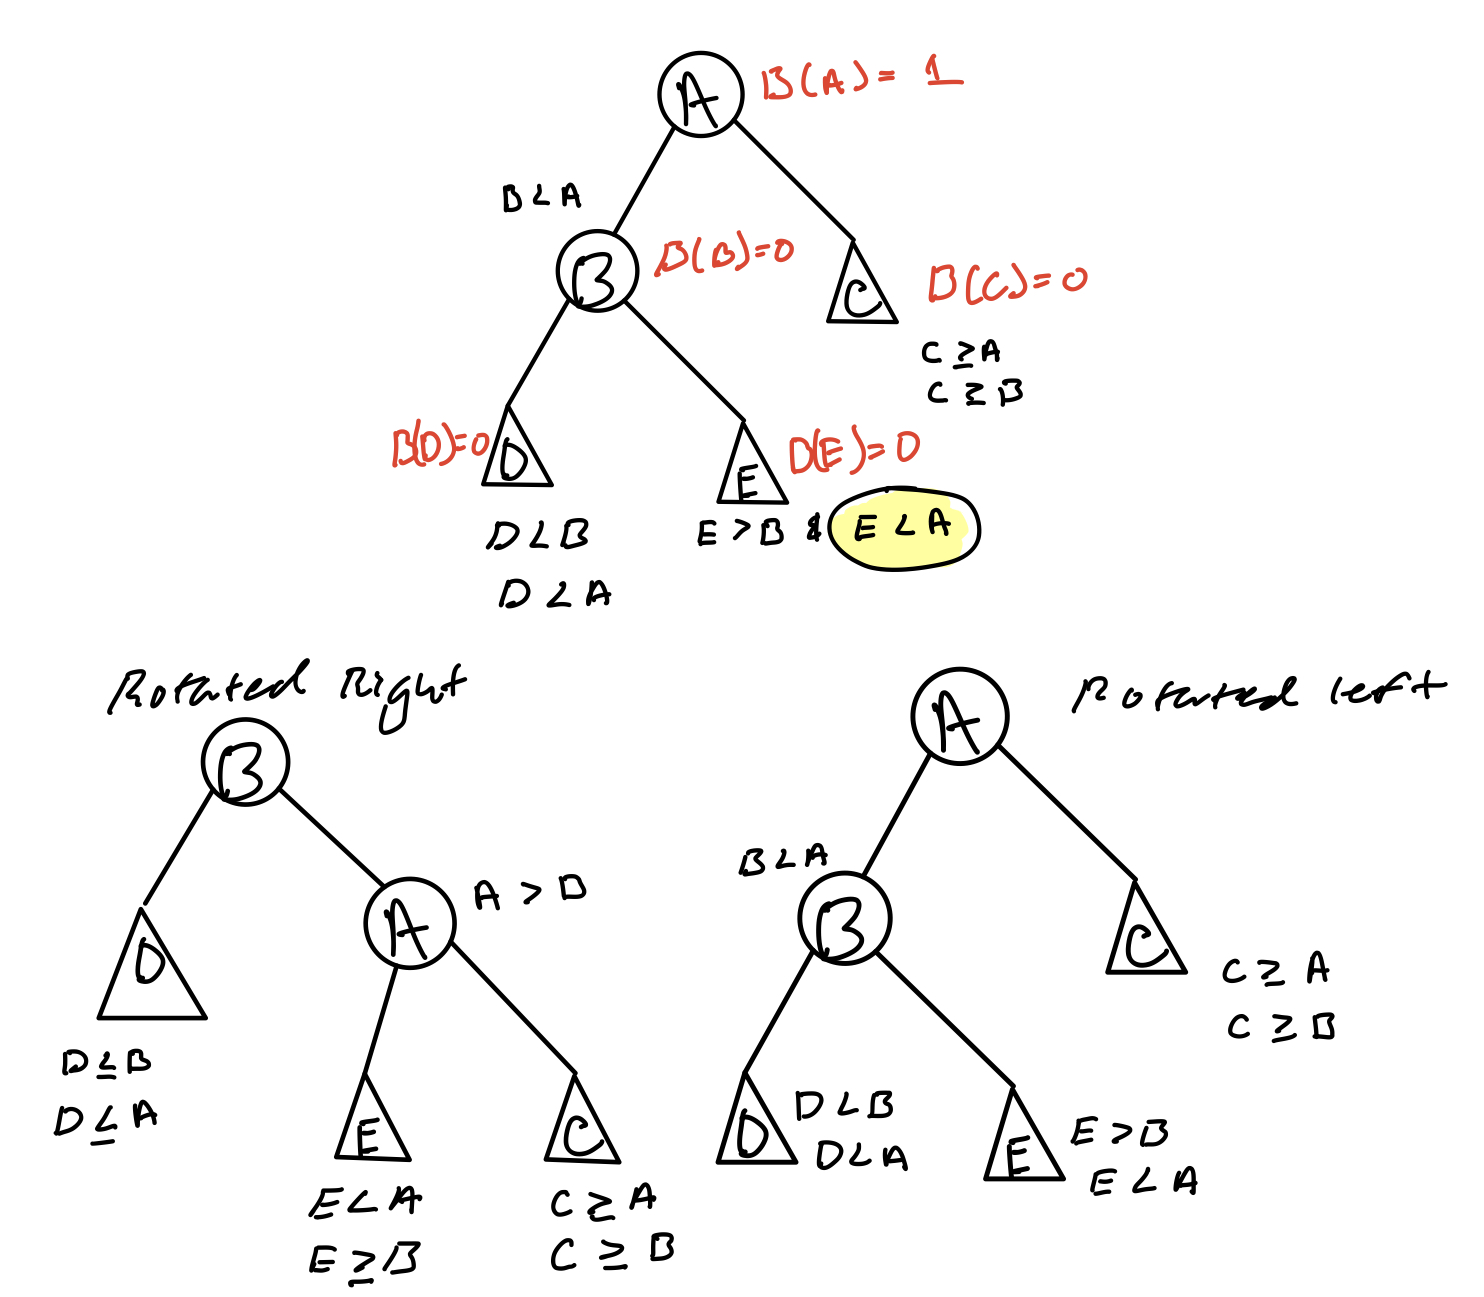 A
B(A) = 1
B < A
B
B(B)=0
C
B(C)=0
C ≥ A
C ≥ B
B(D)=0
D
E
B(E)=0
D < B
D < A
E > B & E < A
Rotated Right
B
A
A > B
D
D ≤ B
D ≤ A
E
E < A
E ≥ B
C
C ≥ A
C ≥ B
Rotated left
A
B < A
B
C
C ≥ A
C ≥ B
D
D < B
D < A
E
E > B
E < A